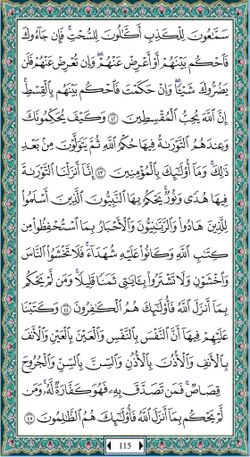 سَمَّاعُونَ لِلْكَذِبِ أَكَّالُونَ لِلسُّحْتِ ۚ فَإِن جَاءُوكَ
فَاحْكُم بَيْنَهُمْ أَوْ أَعْرِضْ عَنْهُمْ ۖ وَإِن تُعْرِضْ عَنْهُمْ فَلَن
يَضُرُّوكَ شَيْئًا ۖ وَإِنْ حَكَمْتَ فَاحْكُم بَيْنَهُم بِالْقِسْطِ ۚ
إِنَّ اللَّهَ يُحِبُّ الْمُقْسِطِينَ ﴿٤٢﴾ وَكَيْفَ يُحَكِّمُونَكَ
وَعِندَهُمُ التَّوْرَاةُ فِيهَا حُكْمُ اللَّهِ ثُمَّ يَتَوَلَّوْنَ مِن بَعْدِ
ذَٰلِكَ ۚ وَمَا أُولَٰئِكَ بِالْمُؤْمِنِينَ ﴿٤٣﴾ إِنَّا أَنزَلْنَا التَّوْرَاةَ
فِيهَا هُدًى وَنُورٌ ۚ يَحْكُمُ بِهَا النَّبِيُّونَ الَّذِينَ أَسْلَمُوا
لِلَّذِينَ هَادُوا وَالرَّبَّانِيُّونَ وَالْأَحْبَارُ بِمَا اسْتُحْفِظُوا مِن
كِتَابِ اللَّهِ وَكَانُوا عَلَيْهِ شُهَدَاءَ ۚ فَلَا تَخْشَوُا النَّاسَ
وَاخْشَوْنِ وَلَا تَشْتَرُوا بِآيَاتِي ثَمَنًا قَلِيلًا ۚ وَمَن لَّمْ يَحْكُم
بِمَا أَنزَلَ اللَّهُ فَأُولَٰئِكَ هُمُ الْكَافِرُونَ ﴿٤٤﴾ وَكَتَبْنَا
عَلَيْهِمْ فِيهَا أَنَّ النَّفْسَ بِالنَّفْسِ وَالْعَيْنَ بِالْعَيْنِ وَالْأَنفَ
بِالْأَنفِ وَالْأُذُنَ بِالْأُذُنِ وَالسِّنَّ بِالسِّنِّ وَالْجُرُوحَ
قِصَاصٌ ۚ فَمَن تَصَدَّقَ بِهِ فَهُوَ كَفَّارَةٌ لَّهُ ۚ وَمَن
لَّمْ يَحْكُم بِمَا أَنزَلَ اللَّهُ فَأُولَٰئِكَ هُمُ الظَّالِمُونَ ﴿٤٥﴾
115